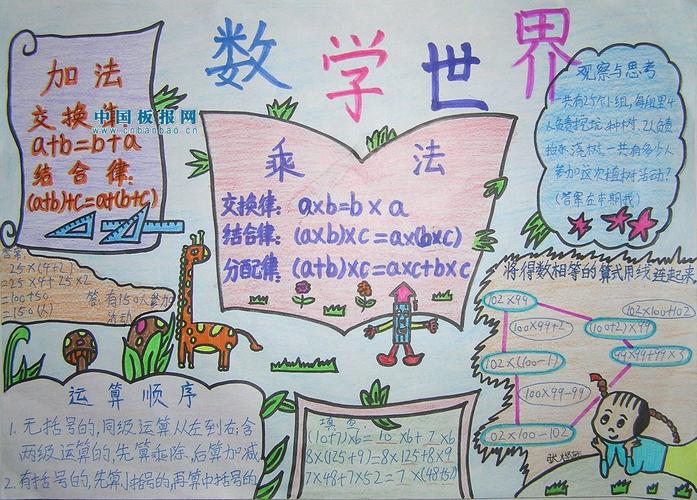 数学世界
加法
交换律
中国板报网
www.cnbanbao.cn
a+b=b+a
结合律:
(a+b)+c=a+(b+c)
乘法
交换律: a×b=b×a
结合律: (a×b)×c=a×(b×c)
分配律: (a+b)×c=a×c+b×c
观察与思考
一共有25个小组,每组里4
人负责挖坑、种树,2人负责
抬水、浇树,一共有多少人
参加这次植树活动?
(答案在本期找)
答案:
25×(4+2)
=25×4+25×2
=100+50
=150(人) 答:有150人参加
活动
将得数相等的算式用线连起来
102×99
102×100+102
100×99+2
(100+2)×99
102×(100-1)
99×99+99×3
100×99-99
102×100-102
运算顺序
1.无括号的,同级运算从左到右;含
两级运算的,先算乘除,后算加减
2.有括号的,先算小括号的,再算中括号的
填空:
(10+7)×6=10×6+7×6
8×(125+9)=8×125+8×9
7×48+7×52=7×(48+52)